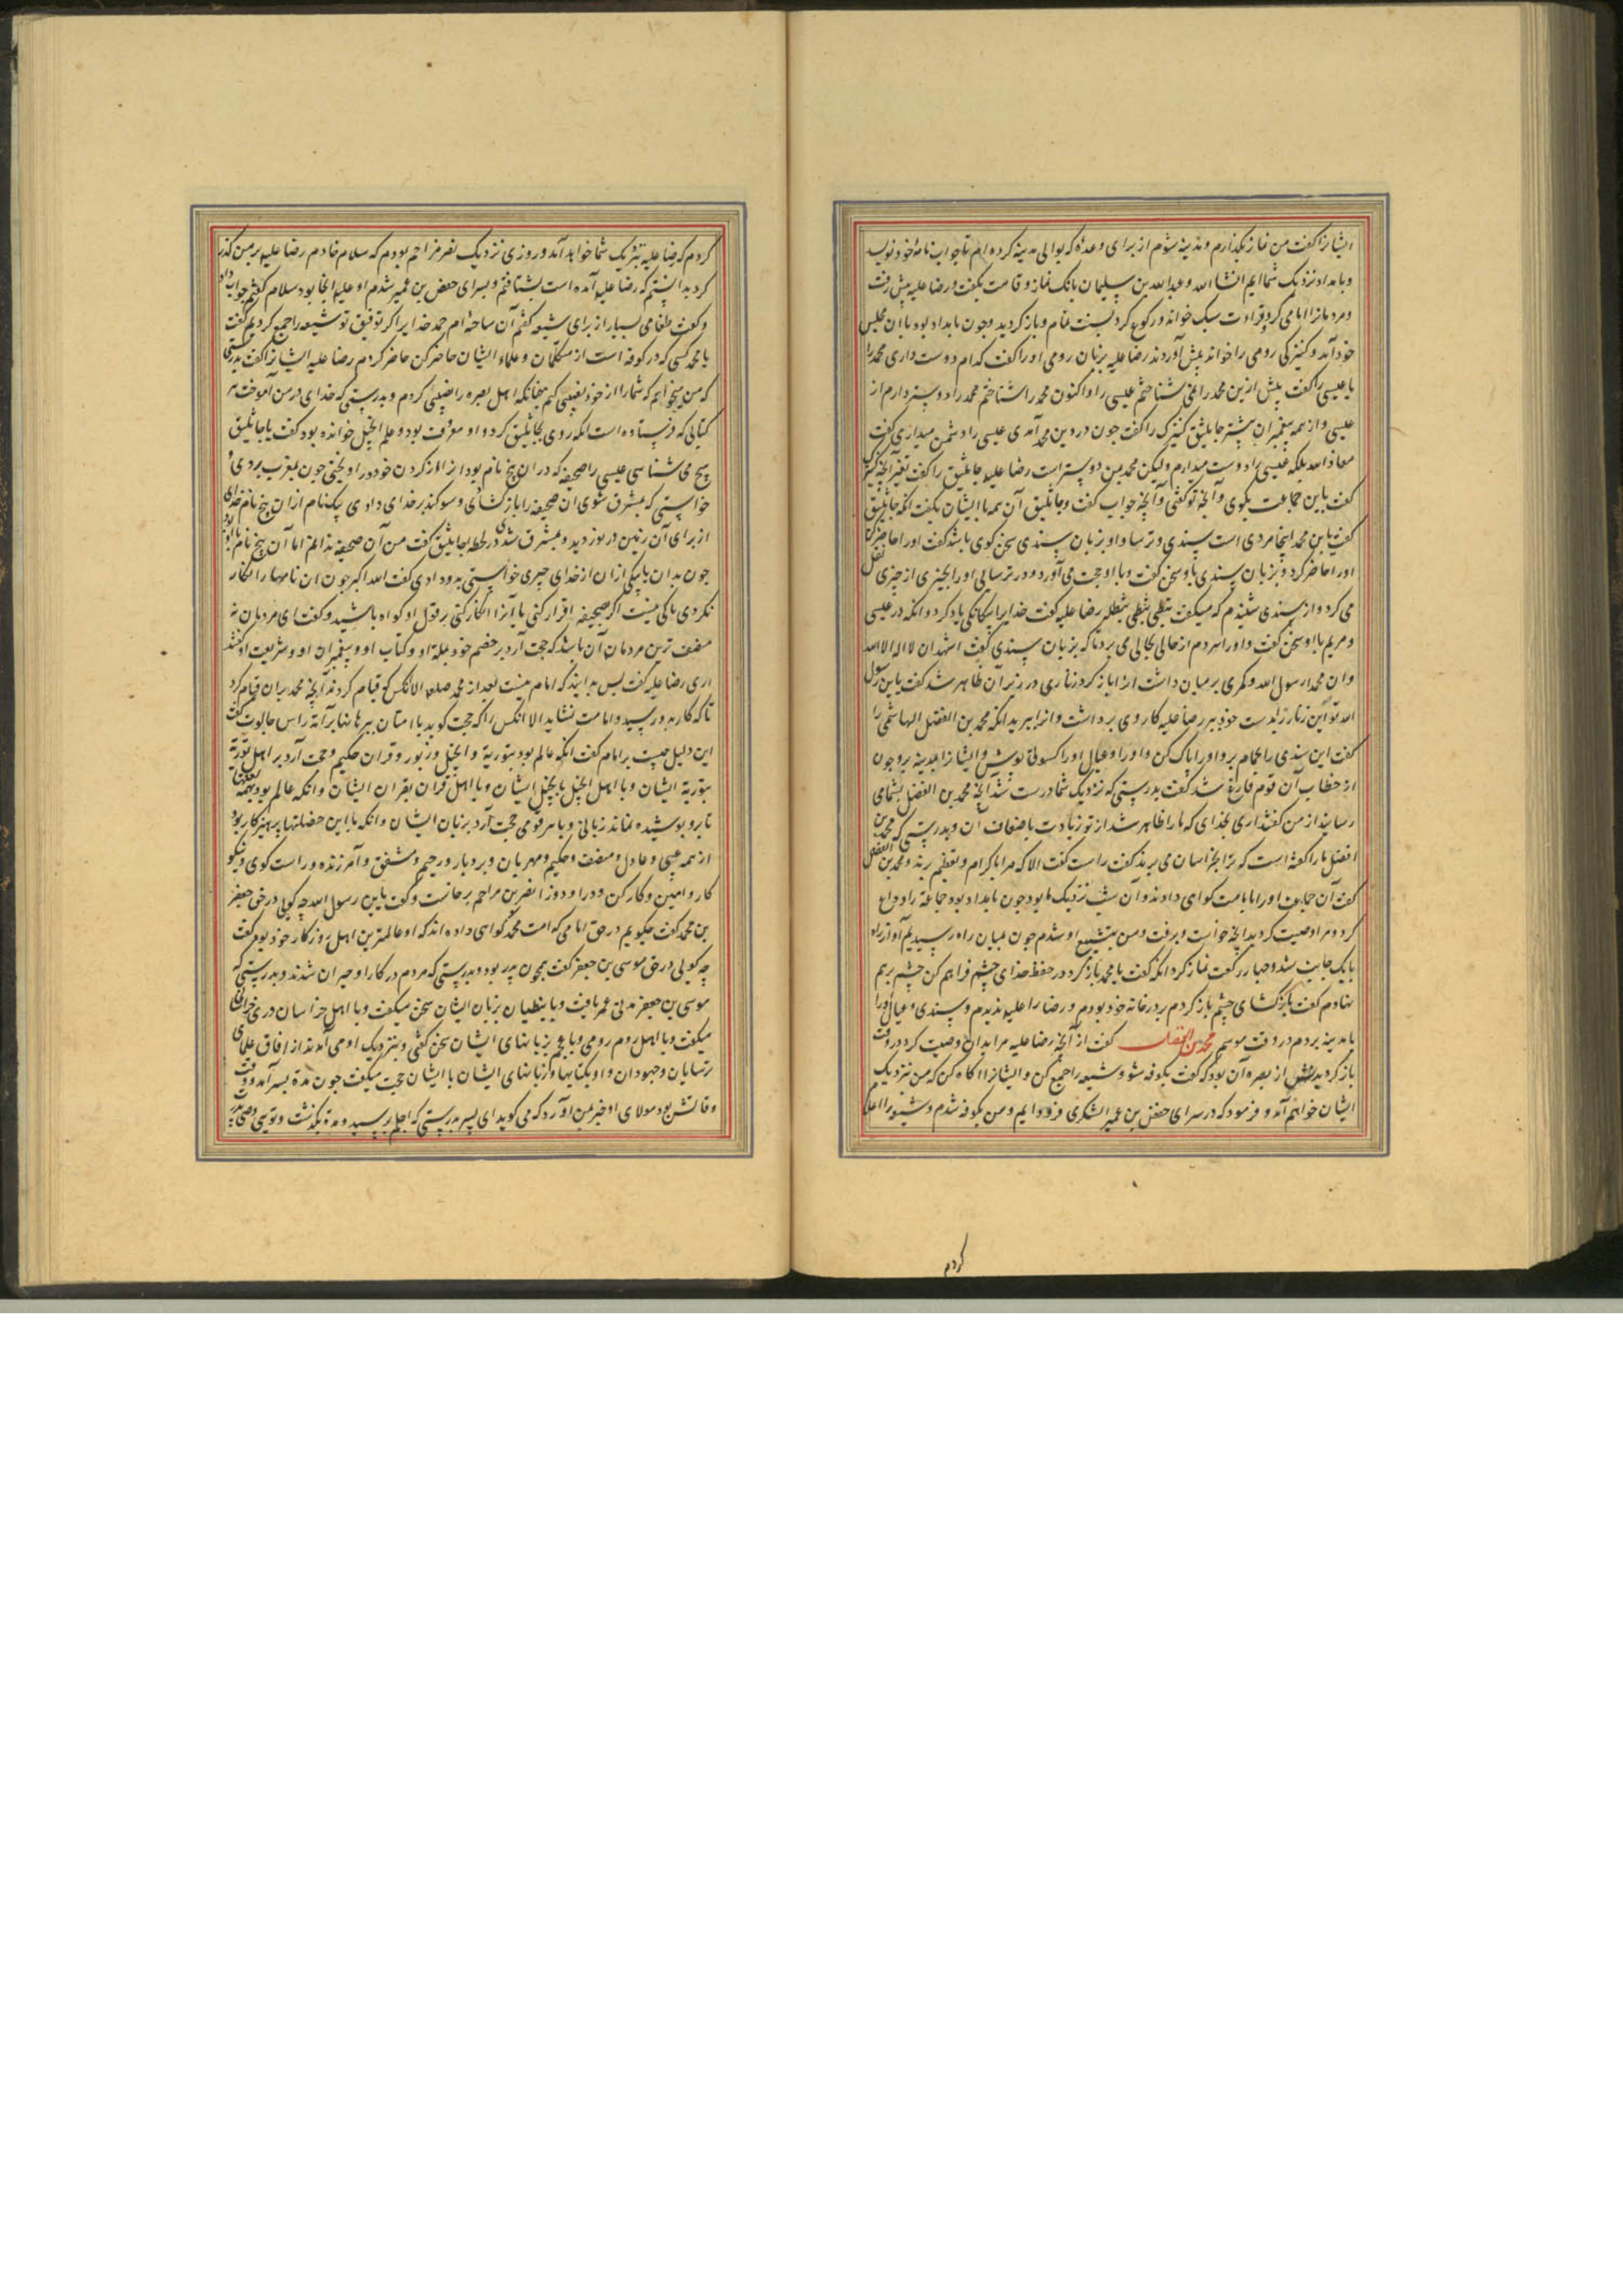 ایشانرا گفت من نماز بگذارم و مدینه شوم از برای وعدهٔ که بوالی مدینه کرده‌ام تا جواب نامهٔ خود نویسد
و بامداد نزدیک شما ایم انشا الله و عبدالله بن سلیمان بانک نماز و قامت بگفت و رضا علیه پیش رفت
و مردمانرا امامی کرد و قراءت سبک خواند و رکوع کرد بسنت تمام و باز کردید و چون بامداد بود با ان مجلس
خود آمد و کنیزکی رومی را خواند پیش آوردند رضا علیه بزبان رومی او را گفت کدام دوست داری محمد را
یا عیسی را گفت پیش ازین محمد را نمی شناختم عیسی را و اکنون محمد را شناختم محمد را دوستر دارم از
عیسی و از همه پیغمبران پیشتر جاثلیق کنیزک را گفت چون در دین محمد آمدی عیسی را دشمن میداری گفت
معاذ الله بلکه عیسی را دوست میدارم ولیکن محمد بمن دوستر است رضا علیه جاثلیق را گفت تفسیر آنچه کنیزک
گفت با این جماعت بکوی و آنچه تو گفتی و آنچه جواب گفت و جاثلیق آن همه با ایشان بگفت انگه جاثلیق
گفت یابن محمد اینجا مردی است سندی و ترسا و او بزبان سندی سخن کوی باشد گفت او را حاضر کن
او را حاضر کرد و بزبان سندی با او سخن گفت و با او حجت می آورد و در ترسایی او را بچیزی از چیزی نقل
می کرد و از سندی شنیدم که میگفت بثطی بثطی بثطله رضا علیه گفت خدایرا بیکانکی یاد کرد و انگه در عیسی
و مریم با او سخن گفت و او را هر دم از حالی بحالی می برد تا که بزبان سندی گفت اشهد ان لا اله الا الله
و ان محمدا رسول الله و کمری بر میان داشت انرا باز کرد زناری در زیر آن ظاهر شد گفت یابن رسول
الله تو این زنار را بدست خود ببر رضا علیه کاردی برداشت و انرا ببرید انگه محمد بن الفضل الهاشمی را
گفت این سندی را بحمام بر و او را پاک کن و او را و عیال او را کسوتی پوش و ایشانرا بمدینه بر و چون
از خطاب آن قوم فارغ شد گفت بدرستی که نزدیک شما درست شد آنچه محمد بن الفضل بشما می
رسانید از من گفتند آری بخدای که ما را ظاهر شد از تو زیادت باضعاف ان و بدرستی که محمد بن
الفضل ما را گفته است که ترا بخراسان می برند گفت راست گفت الا که مرا باکرام و تعظیم برند و محمد بن الفضل
گفت آن جماعت او را بامامت کوای دادند و آن شب نزدیک ما بود چون بامداد بود جماعة را وداع
کرد و مرا وصیت کرد بدانچه خواست و برفت و من بتشییع او شدم چون بمیان راه رسیدیم او از راه
بایک جانب شد و چهار رکعت نماز کرد انگه گفت یا محمد باز کرد در حفظ خدای چشم فراهم کن چشم برهم
نهادم گفت باز گشای چشم باز کردم بر در خانه خود بودم و رضا را علیه ندیدم و سندی و عیال او را
بامدینه بردم در وقت موسم محمد بن الفضل گفت از آنچه رضا علیه مرا بدان وصیت کرد در وقت
باز کردیدنش از بصره آن بود که گفت بکوفه شو و شیعه را جمع کن و ایشانرا آکاه کن که من نزدیک
ایشان خواهم آمد و فرمود که در سرای حفص بن عمیر الیشکری فرود ایم و من بکوفه شدم و شیعه را اعلام
کردم
کردم که رضا علیه بنزدیک شما خواهد آمد و روزی نزدیک نصر مزاحم بودم که سلام خادم رضا علیه بر من گذر
کرد بدانستم که رضا علیه آمده است بشتافتم و بسرای حفص بن عمیر شدم او علیه انجا بود سلام کردم جواب داد
و گفت طعامی بسیار از برای شیعه گفتم آن ساخته‌ام حمد خدایرا که توفیق تو شیعه را جمع کردیم گفت
یا محمد کسی که در کوفه است از متکلمان و علماء ایشان حاضر کن حاضر کردم رضا علیه ایشانرا گفت بدرستی
که من میخواهم که شما را از خود نصیبی کنم چنانکه اهل بصره را نصیبی کردم و بدرستی که خدای در من آموخت هر
کتابی که فرستاده است انگه روی بجاثلیق کرد و او معروف بود و علم انجیل خوانده بود گفت یا جاثلیق
هیچ می شناسی عیسی را صحیفهٔ که در ان پنج نام بود انرا در کردن خود در اویختی چون بمغرب بردی و
خواستی که بمشرق شوی ان صحیفه را باز گشادی و سوکند بر خدای دادی بیکنام از ان پنج نام تا خدای
از برای آن زمین در نوردید و بمشرق شدی در لحظه جاثلیق گفت من آن صحیفه ندانم اما آن پنج نام با او بود
چون بدان یا بیکی از ان از خدای چیزی خواستی بدو دادی گفت الله اکبر چون ان نامها را انکار
نکردی باکی نیست اکر صحیفه اقرار کنی یا آنرا انکار کنی بر قول او کواه باشید و گفت ای مردمان نه
منصف ترین مردمان آن باشد که حجت آرد بر خصم خود بملة او و کتاب او و پیغمبران او و شریعت او گفتند
اری رضا علیه گفت پس بدانید که امام نیست بعد از محمد صلعم الا انکس که قیام کرد بدانچه محمد بدان قیام کرد
تا که کار بدو رسید و امامت نشاید الا انکس را که حجت کوید با امتان ببرهانها بر امة راس جالوت گفت
این دلیل چیست بر امام گفت انکه عالم بود بتوریة و انجیل و زبور و قران حکیم و حجت آرد بر اهل توریة
بتوریة ایشان و با اهل انجیل بانجیل ایشان و با اهل قران بقران ایشان و انکه عالم بود بهمه لغتها
تا برو پوشیده نماند زبانی و با هر قومی حجت آرد بزبان ایشان و انکه با این خصلتها پرهیزکار بود
از همه عیبی و عادل و منصف و حکیم و مهربان و بردبار و رحیم و مشفق و آمرزنده و راست کوی و نیکو
کار و امین و کارکن و دراو دوز انصر بن مزاحم برخاست و گفت یابن رسول الله چه کویی در حق جعفر
بن محمد گفت چکویم در حق امامی که امت محمد کواهی داده‌اند که او عالمترین اهل روزکار خود بود گفت
چه کویی در حق موسی بن جعفر گفت همچون پدر بود و بدرستی که مردم در کار او حیران شدند و بدرستی که
موسی بن جعفر مدتی عمر یافت و با نبطیان بزبان ایشان سخن میگفت و با اهل خراسان دری
میگفت و با اهل روم رومی و با عجم بزبانهای ایشان سخن گفتی و بنزدیک او می آمدند از افاق علمای
ترسایان و جهودان و او بکتابها و زبانهای ایشان با ایشان حجت میگفت چون مدة بسر آمد و وقت
وفاتش بود مولای او خبر بمن آورد که می کوید ای پسر بدرستی که اجلم برسید و مدة بکذشت و تویی وصی پدر